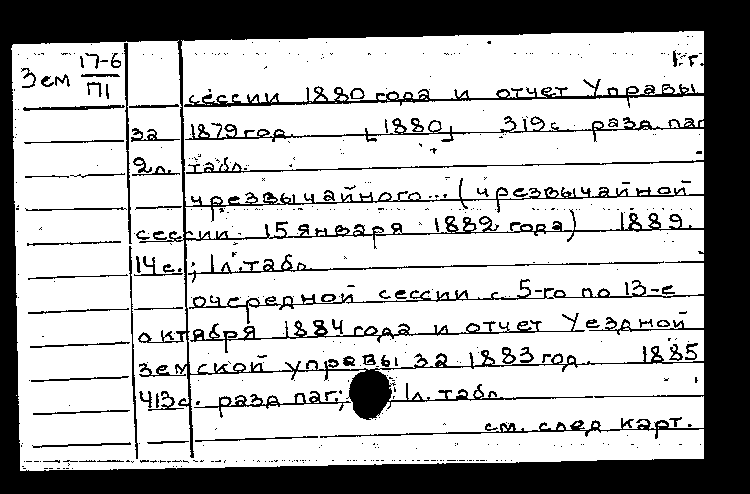 17-6
Зем П1
1 г.
сессии 1880 года и отчет Управы
за 1879 год. [1880] 319 с. разд. паг
2 л. табл.
чрезвычайного... (чрезвычайной
сессии 15 января 1889 года) 1889.
14 с.; 1 л. табл.
очередной сессии с 5-го по 13-е
октября 1884 года и отчет Уездной
земской управы за 1883 год. 1885
413 с. разд паг; 1 л. табл.
см. след карт.